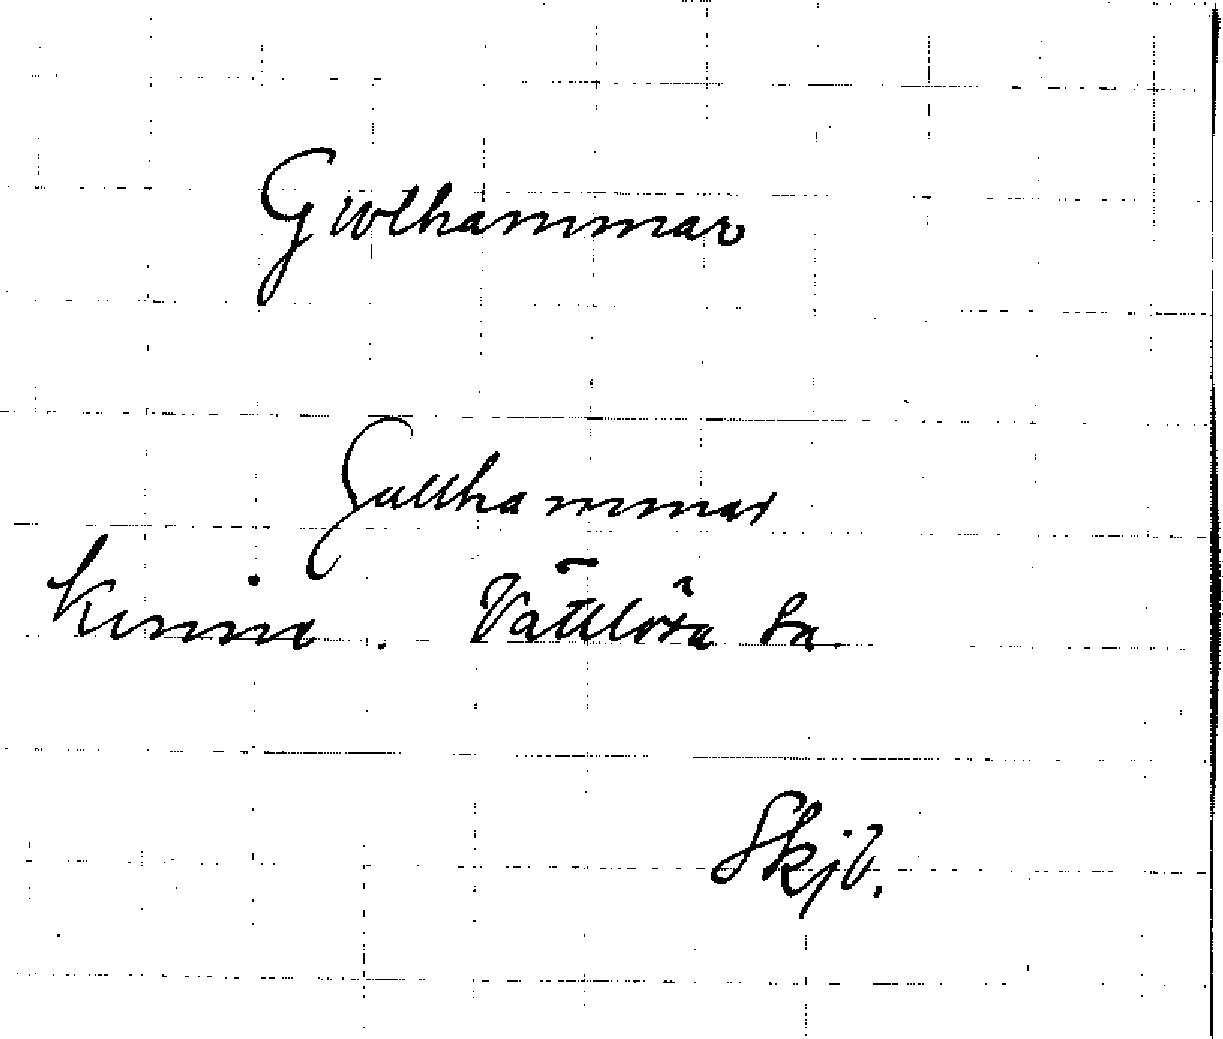 Gullhammar
Gullhammar
Kinne. Vättlösa Sn.
Skjb.